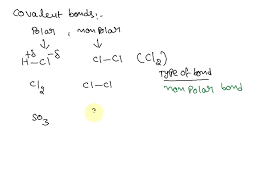 Covalent bonds:-
Polar , nonpolar
+δ -δ
H-Cl Cl-Cl (Cl2)
Type of bond
Cl2 Cl-Cl nonpolar bond
SO3 ?